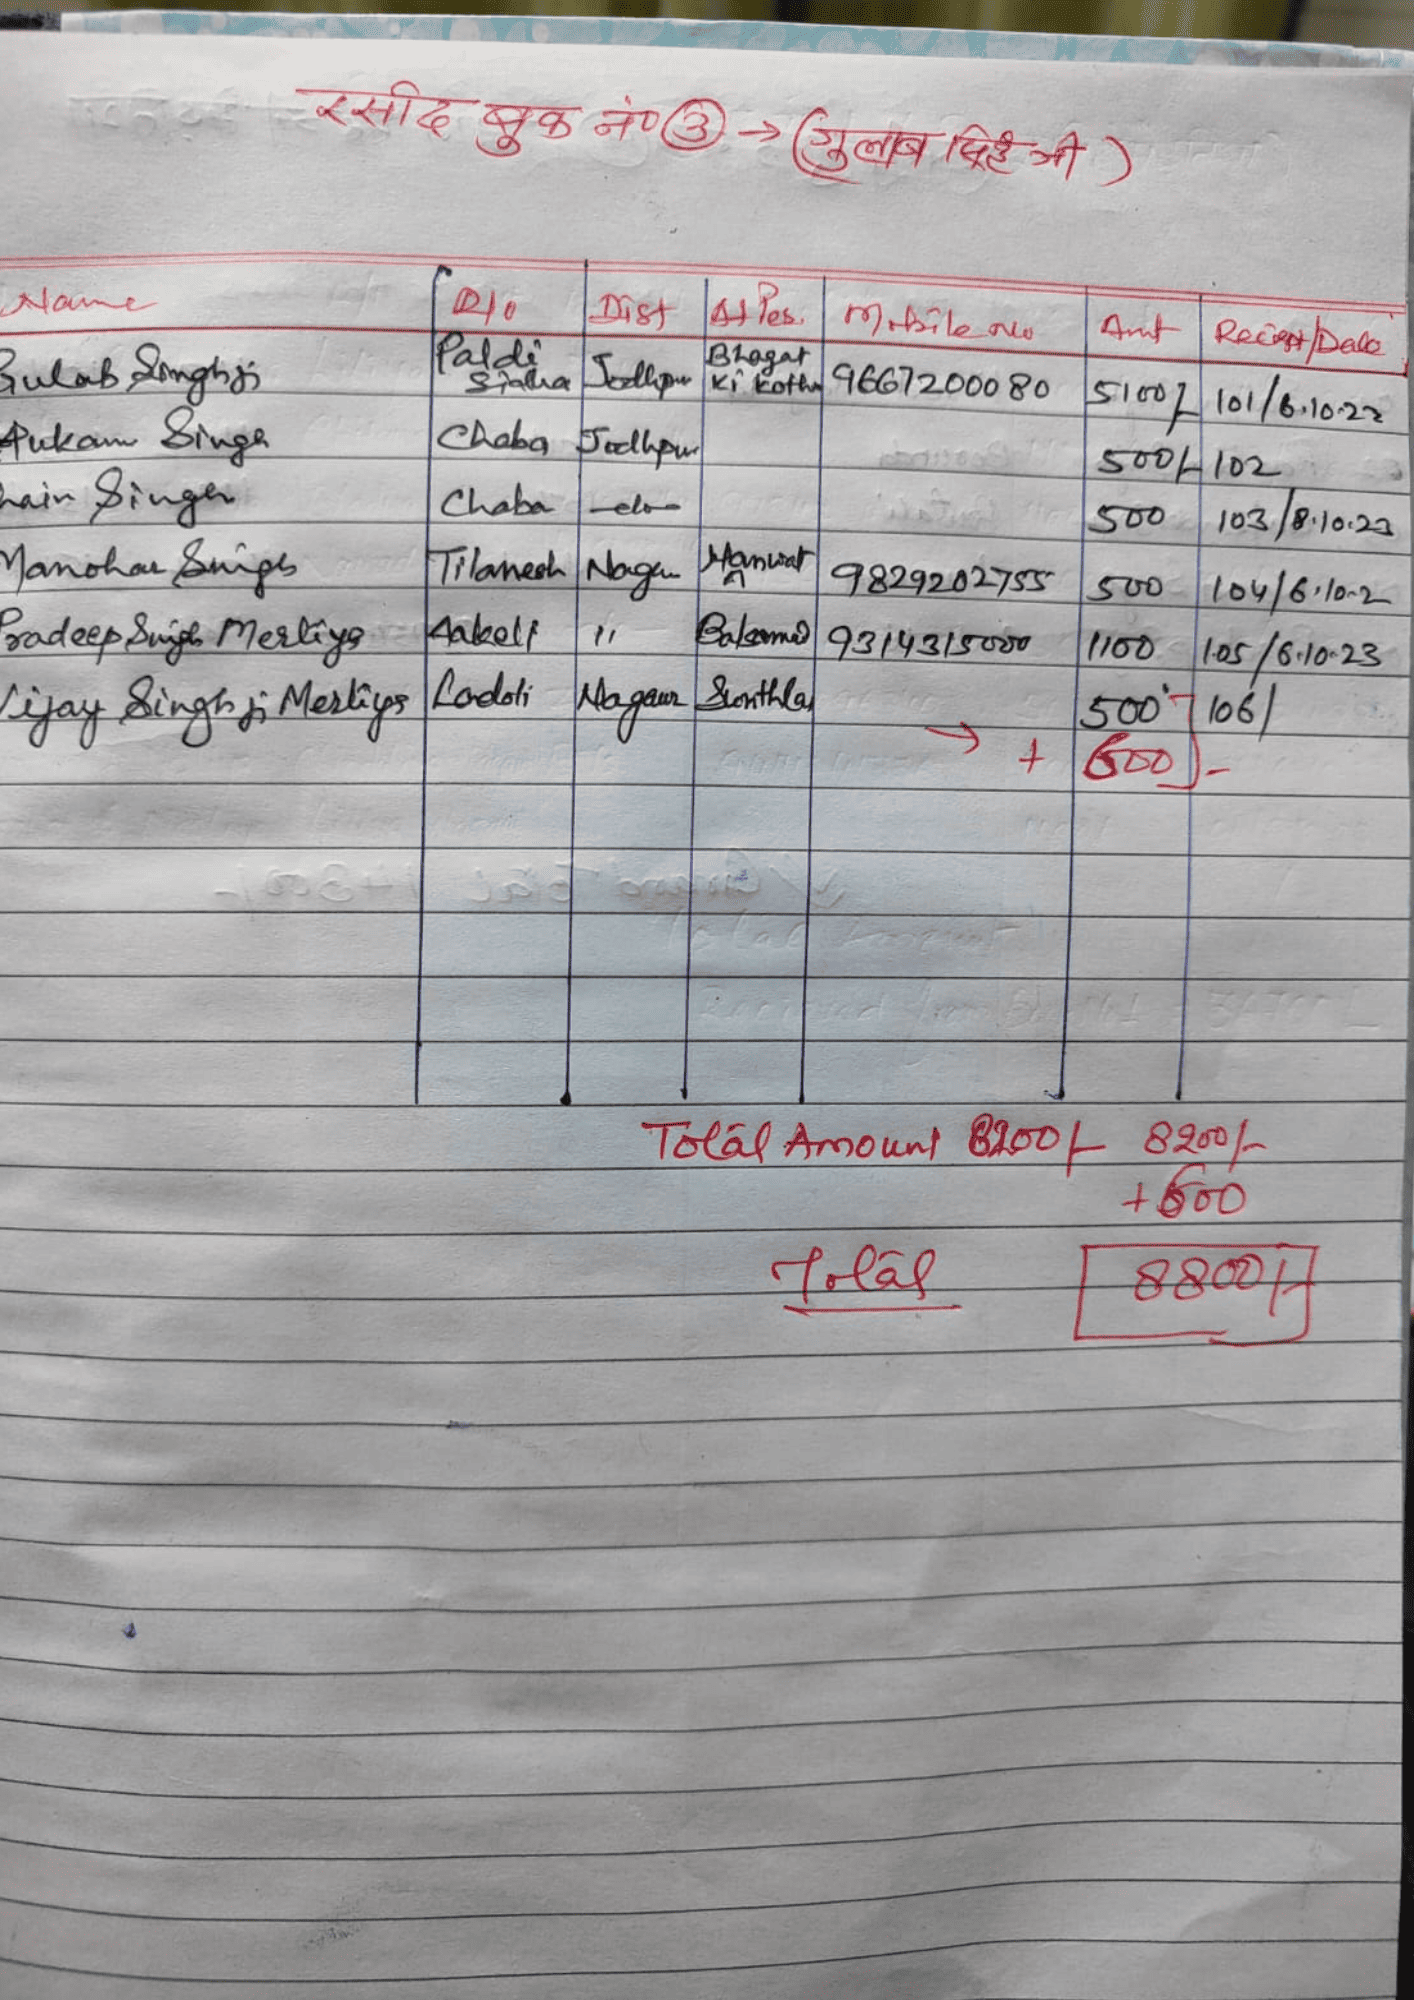 रसीद बुक नं० ③ → (गुलाब सिंह जी)
Name R/o Dist At Pes. Mobile No Amt Reciept/Date
Gulab Singhji Paldi Sidha Jodhpur Bhagat Ki Kothi 9667200080 5100/- 101/6.10.22
Hukam Singh Chaba Jodhpur 500/- 102
hain Singh Chaba -do- 500 103/8.10.23
Manohar Singh Tilanesh Nagau 9829202755 500 104/6.10.2
Pradeep Singh Mertiya Aakeli " 9314315000 1100 105/6.10.23
Vijay Singhji Mertiya Ladoli Nagaur Sunthla 500 106/
→ + 600 -
Total Amount 8200/- 8200/-
+600
Total 8800/-